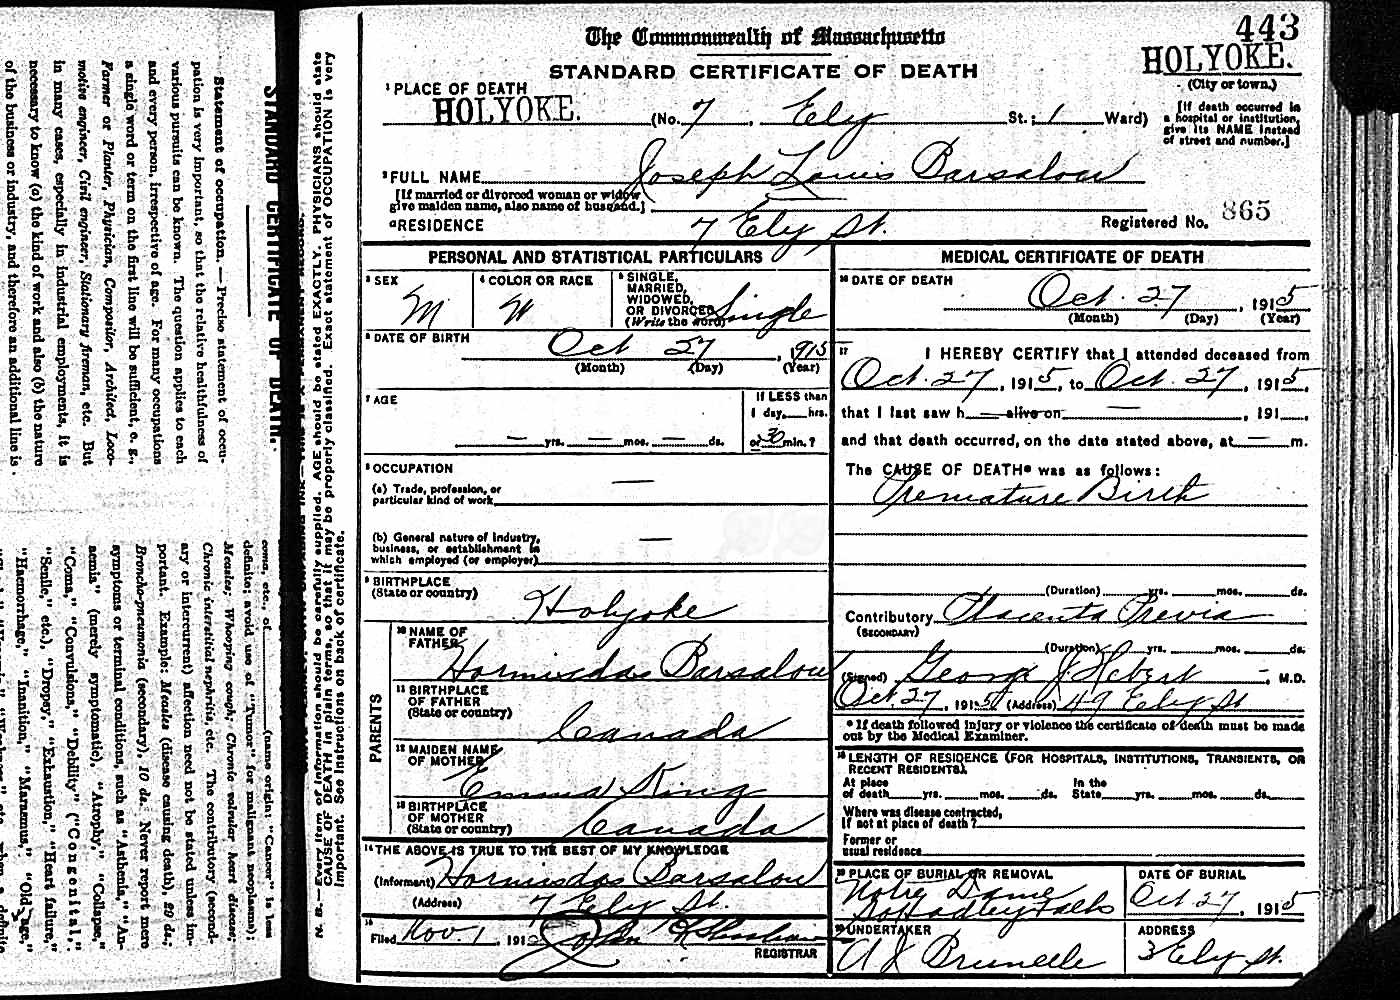 443
The Commonwealth of Massachusetts
HOLYOKE.
(City or town.)
STANDARD CERTIFICATE OF DEATH
1 PLACE OF DEATH
HOLYOKE. (No. 7, Ely St.; 1 Ward)
[If death occurred in
a hospital or institution,
give its NAME instead
of street and number.]
2 FULL NAME Joseph Louis Barsalow
[If married or divorced woman or widow
give maiden name, also name of husband.]
RESIDENCE 7 Ely St. Registered No. 865
PERSONAL AND STATISTICAL PARTICULARS
3 SEX
M
4 COLOR OR RACE
W
5 SINGLE,
MARRIED,
WIDOWED,
OR DIVORCED
(Write the word)
Single
6 DATE OF BIRTH
Oct 27, 1915
(Month) (Day) (Year)
7 AGE
If LESS than
1 day, hrs.
— yrs. — mos. — ds. or 30 min.?
8 OCCUPATION
(a) Trade, profession, or
particular kind of work —
(b) General nature of industry,
business, or establishment in
which employed (or employer) —
9 BIRTHPLACE
(State or country)
Holyoke
PARENTS
10 NAME OF
FATHER
Hormisdas Barsalow
11 BIRTHPLACE
OF FATHER
(State or country)
Canada
12 MAIDEN NAME
OF MOTHER
Emma King
13 BIRTHPLACE
OF MOTHER
(State or country)
Canada
14 THE ABOVE IS TRUE TO THE BEST OF MY KNOWLEDGE
(Informant) Hormisdas Barsalow
(Address) 7 Ely St.
15
Filed Nov. 1, 1915 John
REGISTRAR
MEDICAL CERTIFICATE OF DEATH
16 DATE OF DEATH
Oct. 27, 1915
(Month) (Day) (Year)
17 I HEREBY CERTIFY that I attended deceased from
Oct. 27, 1915, to Oct. 27, 1915,
that I last saw h — alive on —, 191
and that death occurred, on the date stated above, at — m.
The CAUSE OF DEATH* was as follows:
Premature Birth
(Duration) yrs. mos. ds.
Contributory Placenta Previa
(SECONDARY)
(Duration) yrs. mos. ds.
(Signed) George J. Hebert, M.D.
Oct. 27, 1915 (Address) 49 Ely St
* If death followed injury or violence the certificate of death must be made
out by the Medical Examiner.
18 LENGTH OF RESIDENCE (FOR HOSPITALS, INSTITUTIONS, TRANSIENTS, OR
RECENT RESIDENTS).
At place In the
of death yrs. mos. ds. State yrs. mos. ds.
Where was disease contracted,
If not at place of death?
Former or
usual residence
19 PLACE OF BURIAL OR REMOVAL
Notre Dame
So Hadley Falls
DATE OF BURIAL
Oct 27, 1915
20 UNDERTAKER
A J Brunelle
ADDRESS
3 Ely St.
N. B.—Every item of information should be carefully supplied. AGE should be stated EXACTLY. PHYSICIANS should state
CAUSE OF DEATH in plain terms, so that it may be properly classified. Exact statement of OCCUPATION is very
important. See instructions on back of certificate.
STANDARD CERTIFICATE OF DEATH.
Statement of occupation.—Precise statement of occu-
pation is very important, so that the relative healthfulness of
various pursuits can be known. The question applies to each
and every person, irrespective of age. For many occupations
a single word or term on the first line will be sufficient, e. g.,
Farmer or Planter, Physician, Compositor, Architect, Loco-
motive engineer, Civil engineer, Stationary fireman, etc. But
in many cases, especially in industrial employments, it is
necessary to know (a) the kind of work and also (b) the nature
of the business or industry, and therefore an additional line is
coma, etc., of (name origin; "Cancer" is less
definite; avoid use of "Tumor" for malignant neoplasms);
Measles; Whooping cough; Chronic valvular heart disease;
Chronic interstitial nephritis, etc. The contributory (second-
ary or intercurrent) affection need not be stated unless im-
portant. Example: Measles (disease causing death), 29 ds.;
Broncho-pneumonia (secondary), 10 ds. Never report mere
symptoms or terminal conditions, such as "Asthenia," "An-
aemia" (merely symptomatic), "Atrophy," "Collapse,"
"Coma," "Convulsions," "Debility" ("Congenital,"
"Senile," etc.), "Dropsy," "Exhaustion," "Heart failure,"
"Haemorrhage," "Inanition," "Marasmus," "Old age,"